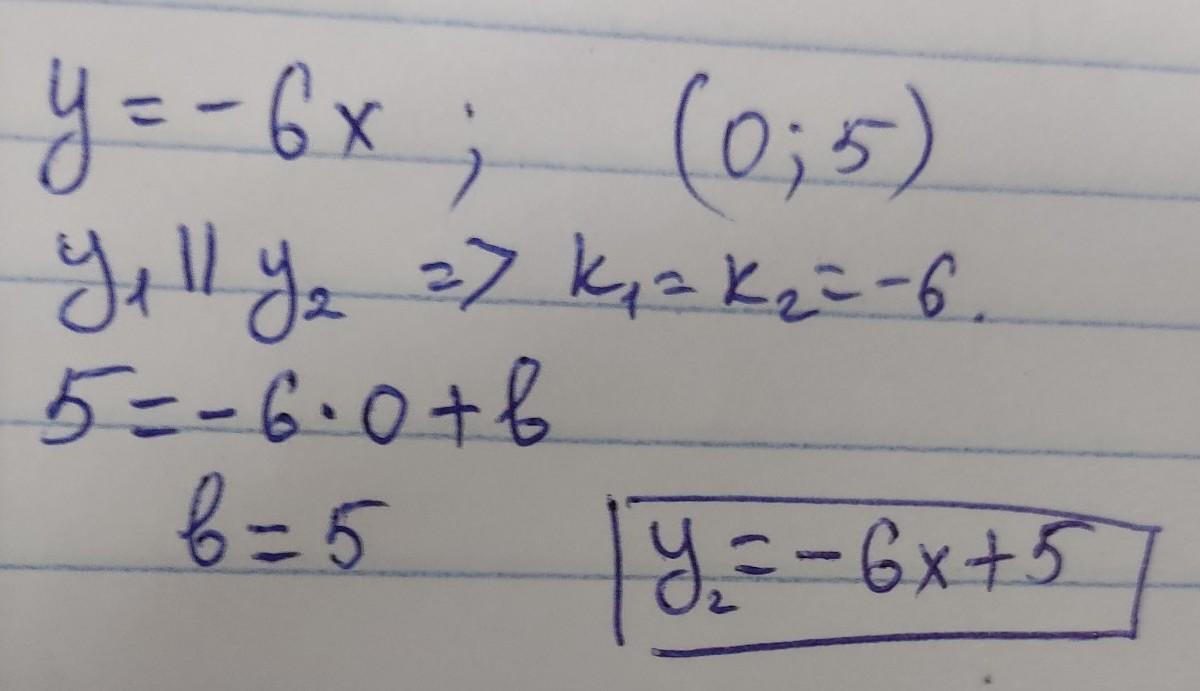 y = -6x ; (0; 5)
y₁ || y₂ => k₁ = k₂ = -6.
5 = -6 · 0 + b
b = 5 y₂ = -6x + 5